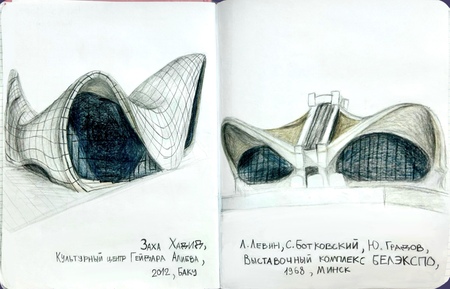 Заха Хадид,
Культурный центр Гейдара Алиева,
2012, Баку
Л. Левин, С. Ботковский, Ю. Градов,
Выставочный комплекс БЕЛЭКСПО,
1968, Минск